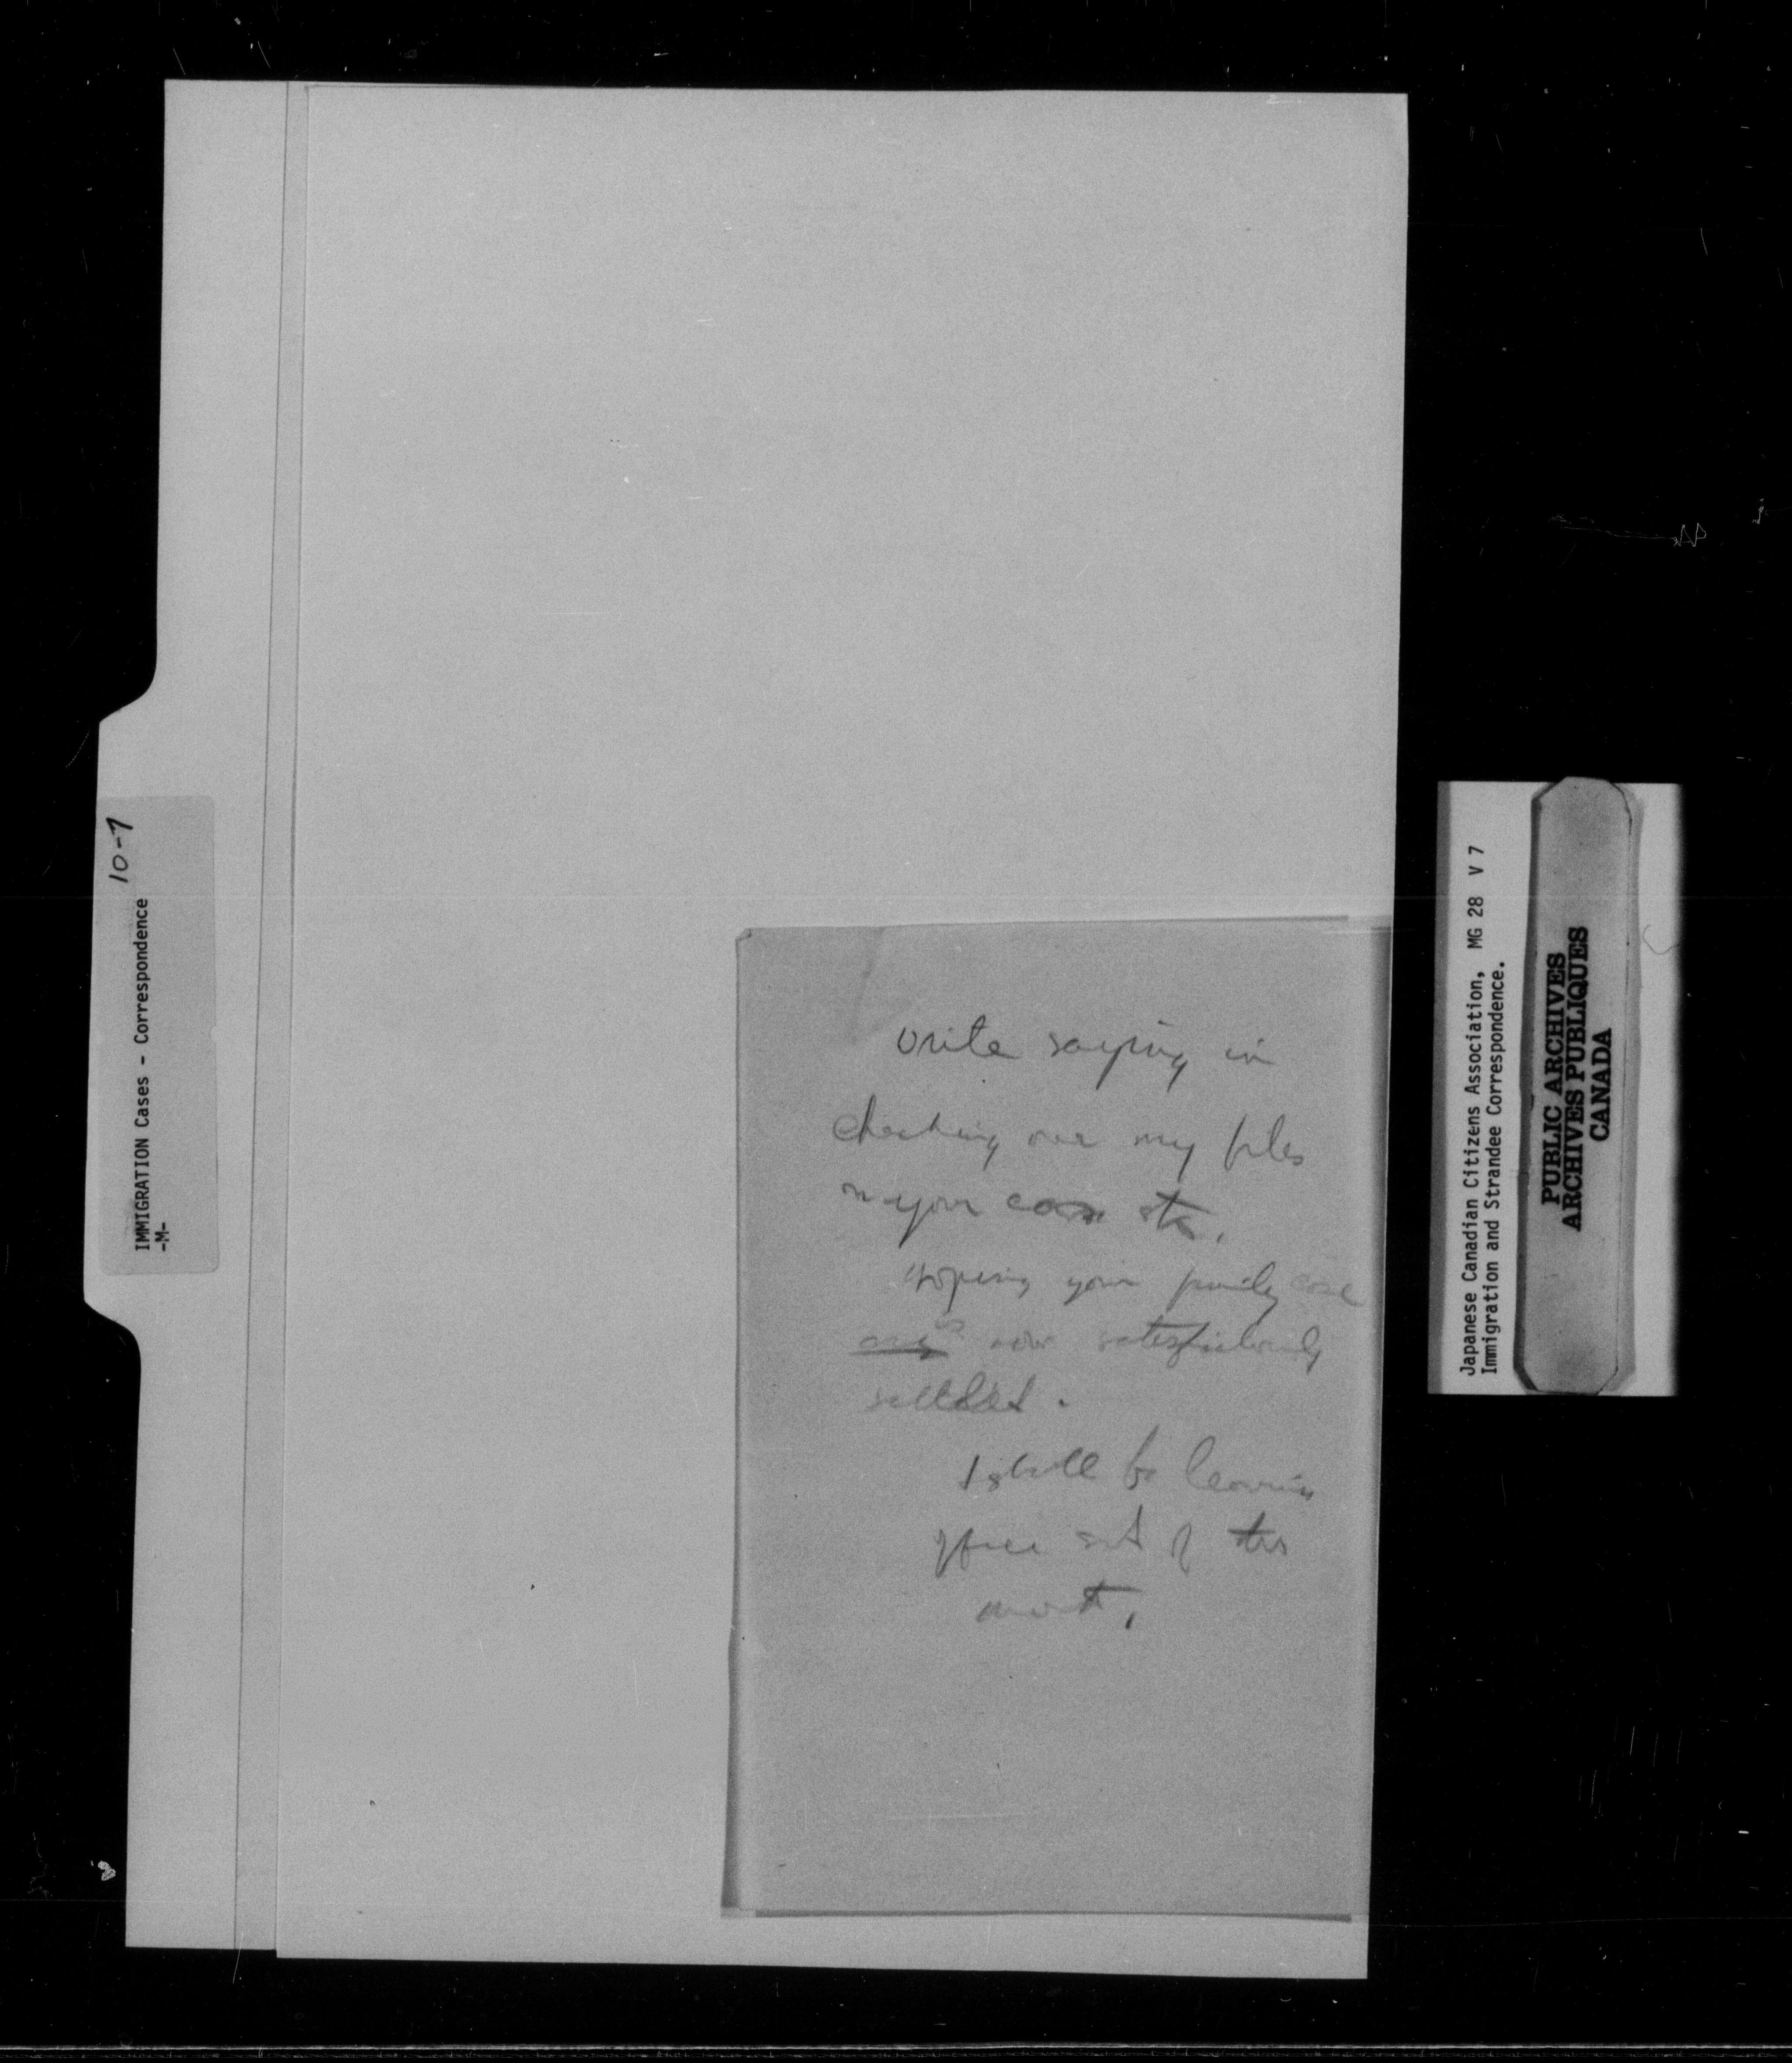 10-7
IMMIGRATION Cases - Correspondence
-M-
write saying in
checking over my files
on your case etc.
Hoping your family case
is now satisfactorily
settled.
I shall be leaving
office end of this
month.
Japanese Canadian Citizens Association, MG 28 V 7
Immigration and Strandee Correspondence.
PUBLIC ARCHIVES
ARCHIVES PUBLIQUES
CANADA